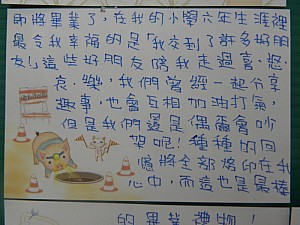 即將畢業了,在我的小學六年生涯裡
最令我幸福的是「我交到了許多好朋
友!」這些好朋友陪我走過喜、怒、
哀、樂,我們曾經一起分享
趣事,也會互相加油打氣,
但是我們還是偶爾會吵
架呢!種種的回
憶將全部烙印在我
心中,而這也是最棒
的畢業禮物!